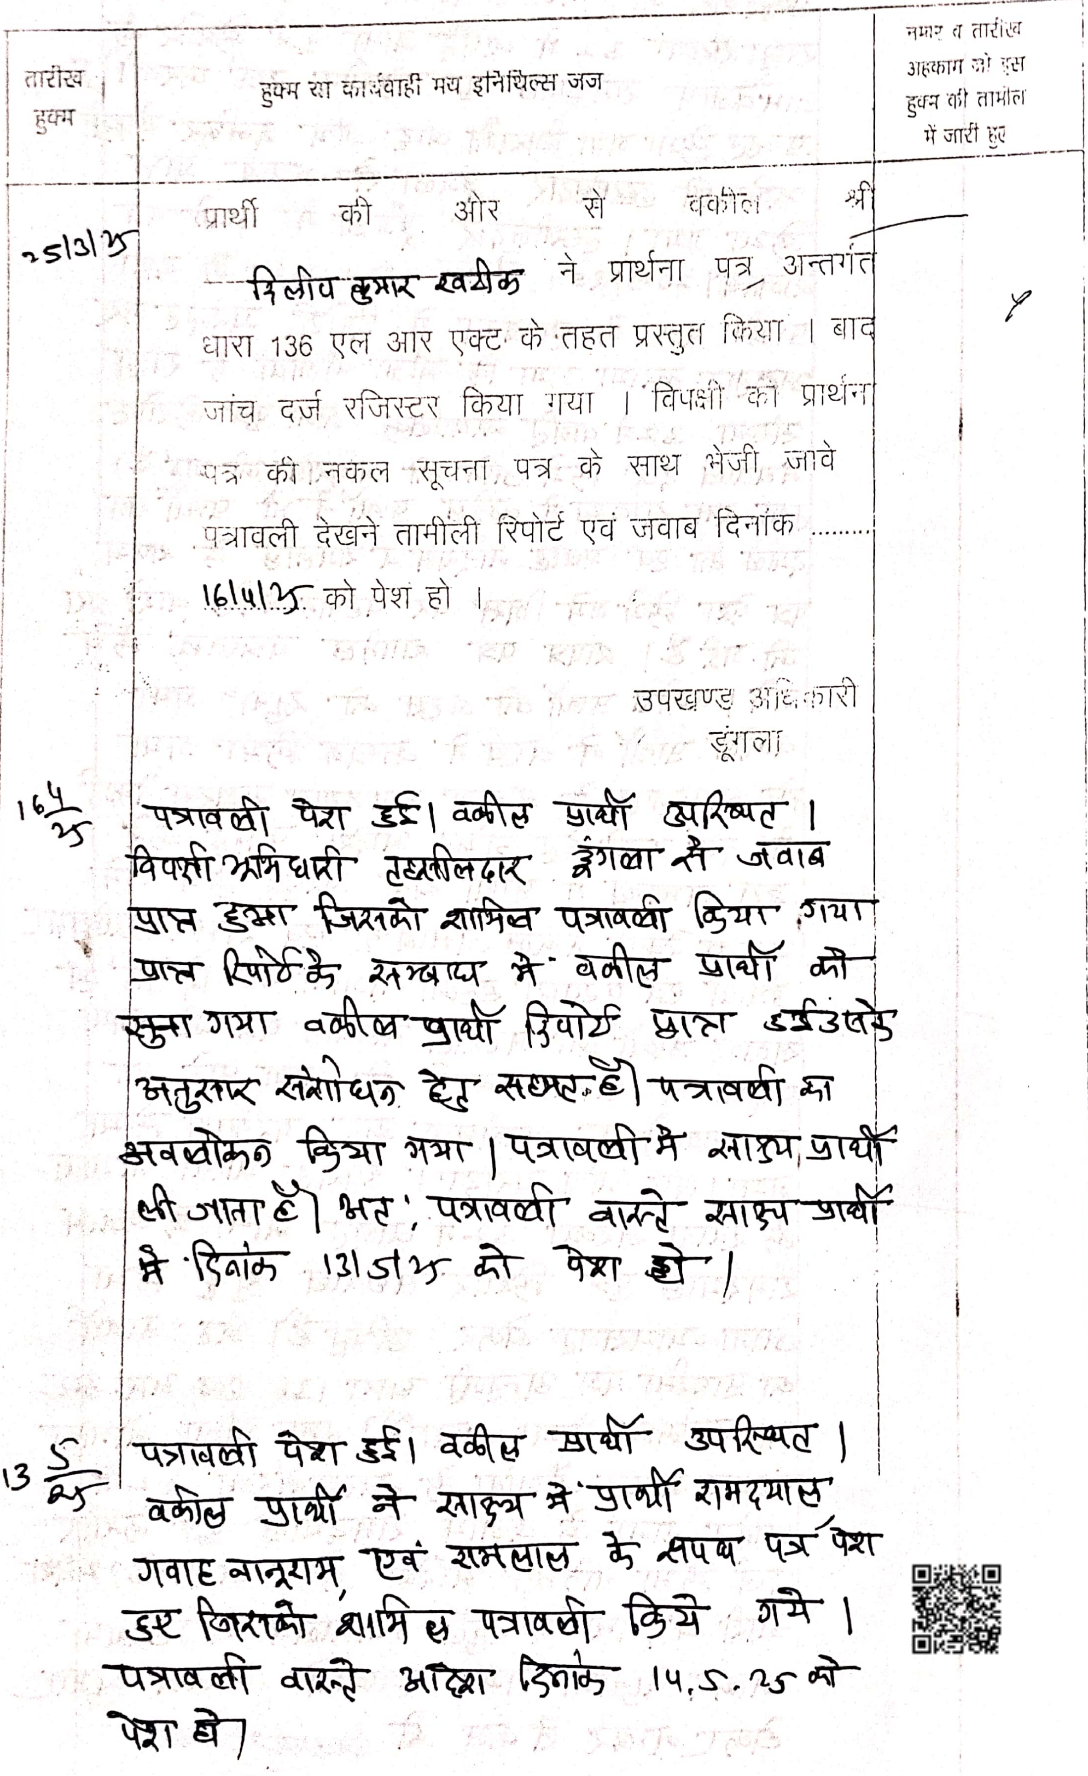 तारीख हुक्म
हुक्म या कार्यवाही मय इनिथिल्स जज
नम्बर व तारीख
अहकाम जो इस
हुक्म की तामील
में जारी हुए
25/3/25
प्रार्थी की ओर से वकील श्री
दिलीप कुमार खटीक ने प्रार्थना पत्र अन्तर्गत
धारा 136 एल आर एक्ट के तहत प्रस्तुत किया । बाद
जांच दर्ज रजिस्टर किया गया । विपक्षी को प्रार्थना
पत्र की नकल सूचना पत्र के साथ भेजी जावे
पत्रावली देखने तामीली रिपोर्ट एवं जवाब दिनांक .........
16/4/25 को पेश हो ।
उपखण्ड अधिकारी
डूंगला
16/4/25
पत्रावली पेश हुई। वकील प्रार्थी उपस्थित ।
विपक्षी भूमिधारी तहसीलदार डूंगला से जवाब
प्राप्त हुआ जिसको शामिल पत्रावली किया गया
प्राप्त रिपोर्ट के सम्बन्ध में वकील प्रार्थी को
सुना गया वकील प्रार्थी रिपोर्ट प्राप्त हुई उसके
अनुसार संशोधन हेतु सहमत है। पत्रावली का
अवलोकन किया गया । पत्रावली में साक्ष्य प्रार्थी
ली जाता है। अत: पत्रावली वास्ते साक्ष्य प्रार्थी
में दिनांक 13/5/25 को पेश हो ।
13/5/25
पत्रावली पेश हुई। वकील प्रार्थी उपस्थित ।
वकील प्रार्थी ने साक्ष्य में प्रार्थी रामदयाल
गवाह नानूराम, एवं रामलाल के सपथ पत्र पेश
हुए जिसको शामिल पत्रावली किये गये ।
पत्रावली वास्ते आदेश दिनांक 14.5.25 को
पेश हो।